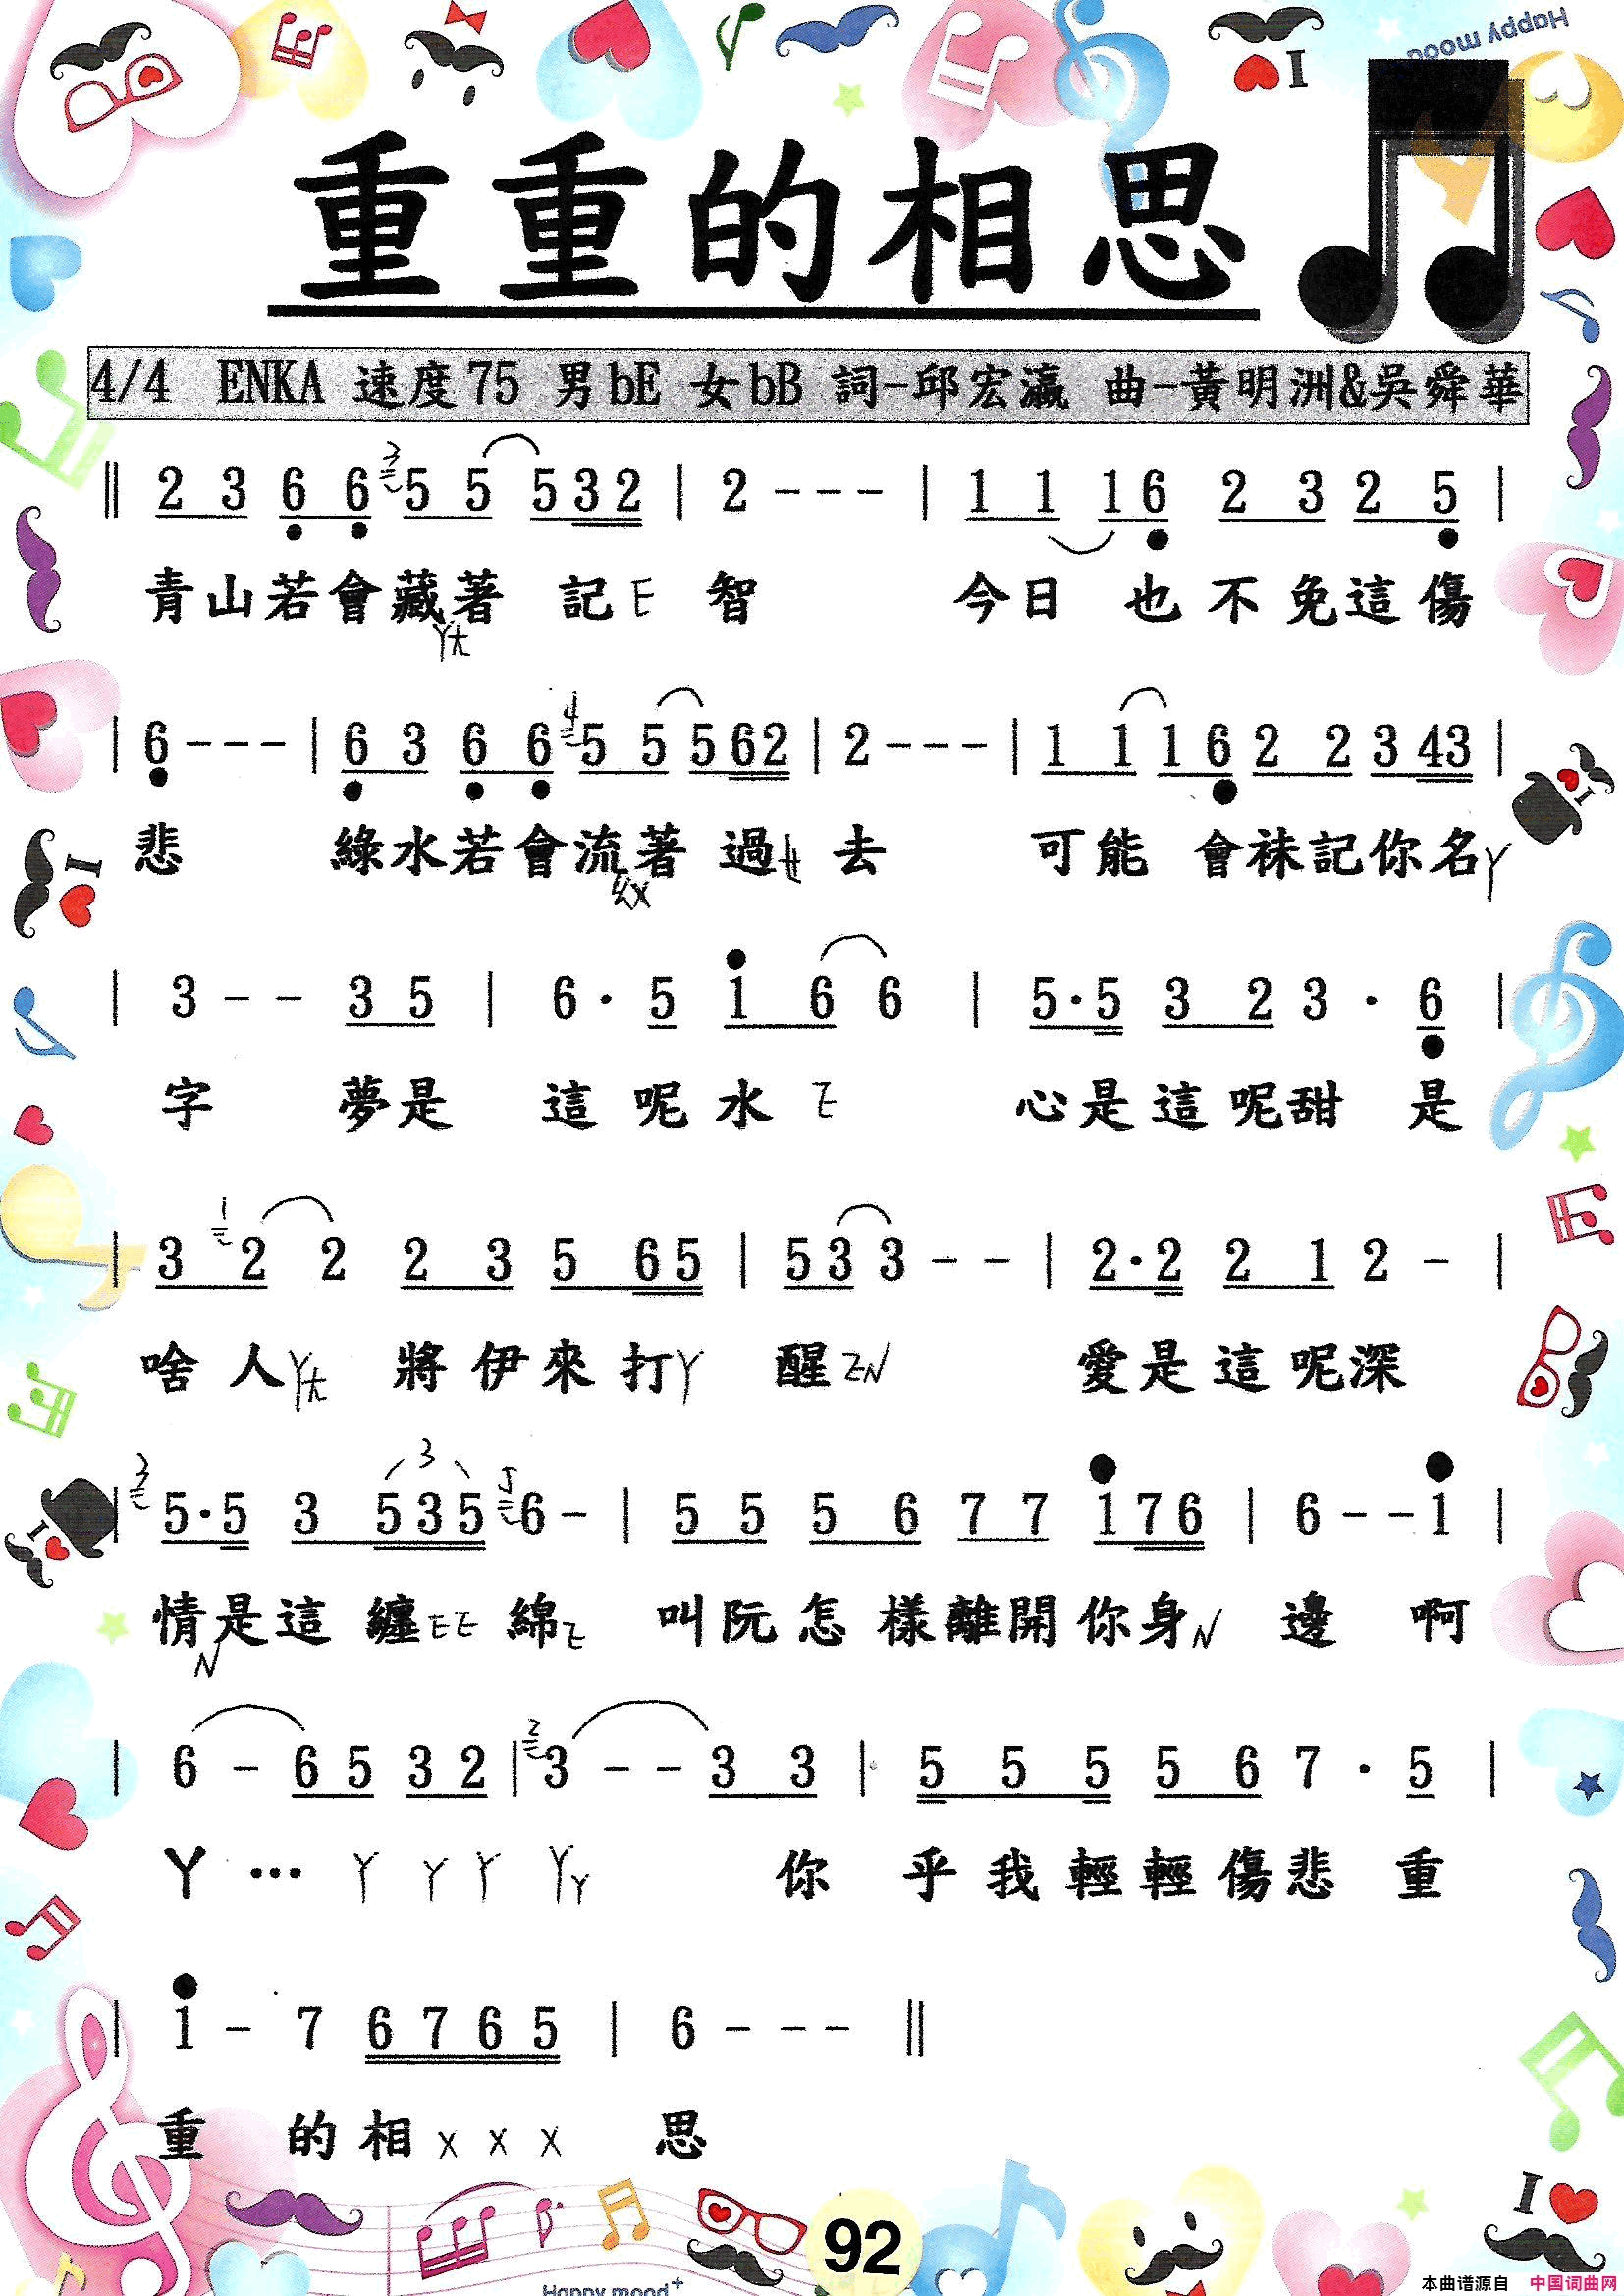 Happy mood
I
重重的相思
4/4 ENKA 速度75 男bE 女bB 詞-邱宏瀛 曲-黃明洲&吳舜華
‖ 2 3 6 6 3 5 5 5 3 2 | 2 - - - | 1 1 1 6 2 3 2 5 |
青山若會藏著 記ㄝ 智 今日 也不免這傷
ㄚㄤ
| 6 - - - | 6 3 6 6 4 5 5 5 6 2 | 2 - - - | 1 1 1 6 2 2 3 4 3 |
悲 綠水若會流著 過ㄝ 去 可能 會袜記你名ㄚ
ㄠㄨ
| 3 - - 3 5 | 6 · 5 1 6 6 | 5 · 5 3 2 3 · 6 |
字 夢是 這呢水ㄟ 心是這呢甜 是
| 3 1 2 2 2 3 5 6 5 | 5 3 3 - - | 2 · 2 2 1 2 - |
啥人ㄚㄤ 將伊來打ㄚ 醒 ㄟN 愛是這呢深
| 3 5 · 5 3 3 5 3 5 5 6 - | 5 5 5 6 7 7 1 7 6 | 6 - - 1 |
情是這纏ㄝㄟ 綿ㄟ 叫阮怎樣離開你身N 邊 啊
N
| 6 - 6 5 3 2 | 2 3 - - 3 3 | 5 5 5 5 6 7 · 5 |
ㄚ … ㄚ ㄚ ㄚ ㄚㄚ 你 乎我輕輕傷悲 重
| 1 - 7 6 7 6 5 | 6 - - - ‖
重 的相 x x x 思
I
92
Happy mood+
本曲谱源自 中国词曲网